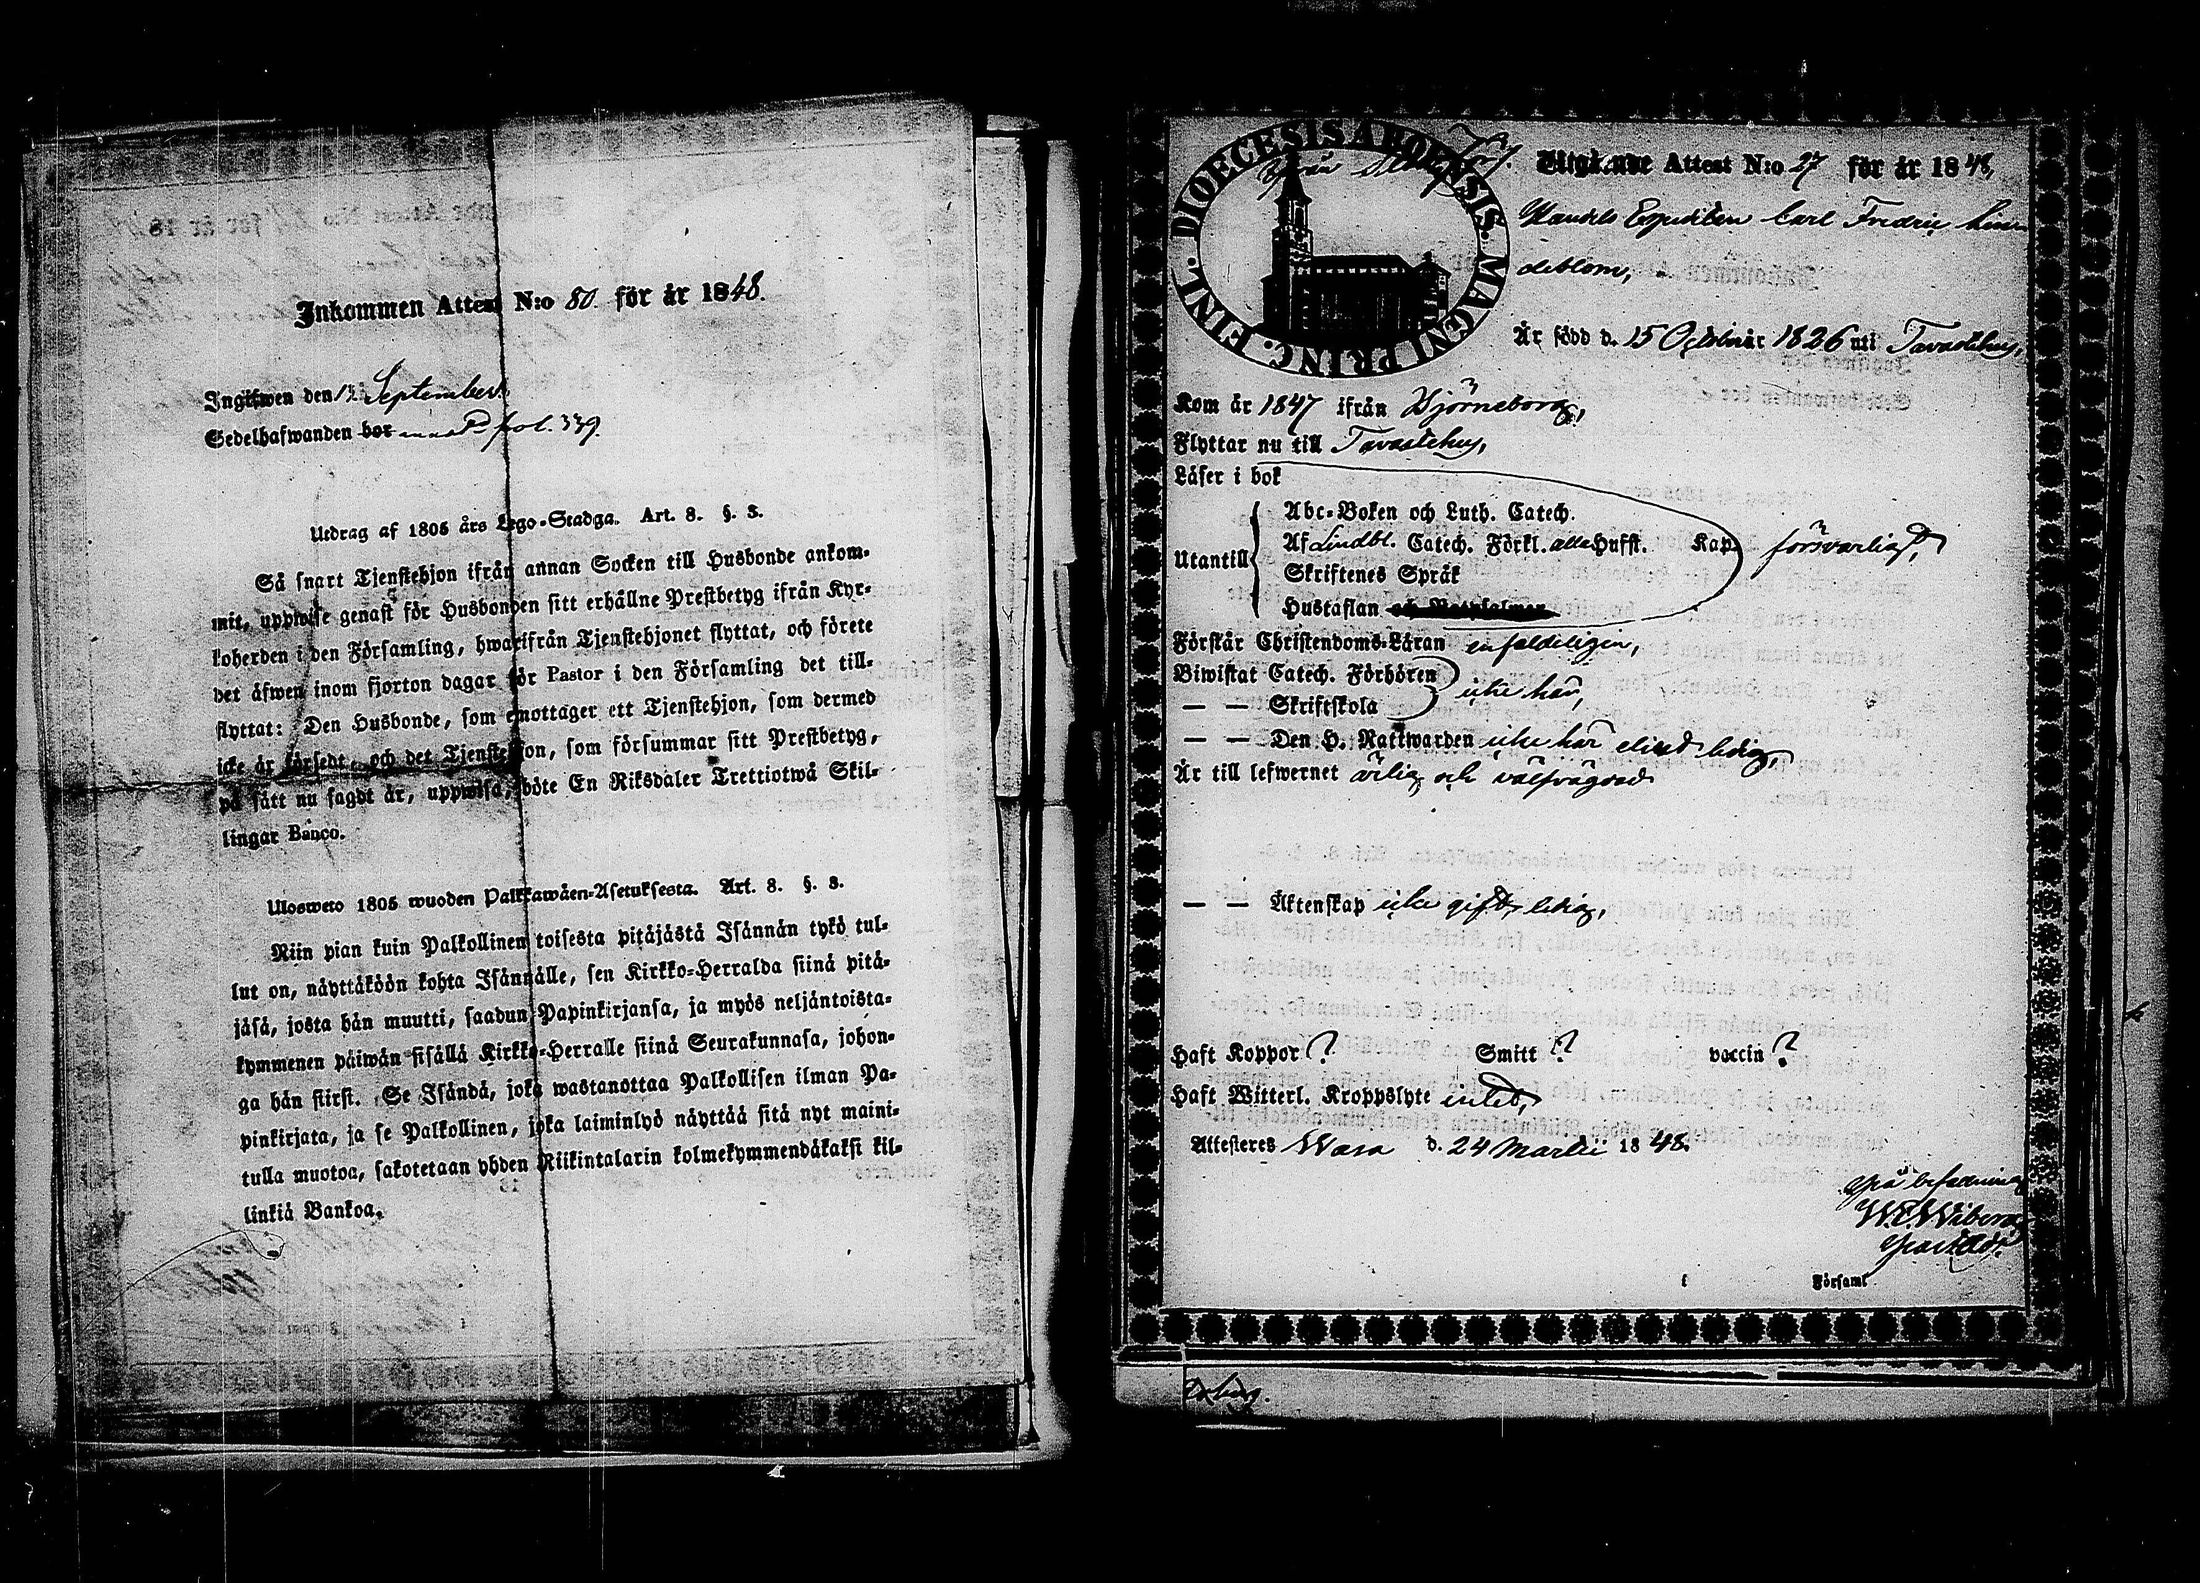 Inkommen Attest N:o 80. för år 1848.
Ingifwen den 12 September.
Sedelhafwanden bor pol. 339.
Utdrag af 1805 års Lego-Stadga. Art. 8. §. 3.
Så snart Tjenstehjon ifrån annan Socken till Husbonde ankom-
mit, uppwise genast för Husbonden sitt erhållne Prestbetyg ifrån Kyr-
koherden i den Församling, hwarifrån Tjenstehjonet flyttat, och förete
det äfwen inom fjorton dagar för Pastor i den Församling det till-
flyttat: Den Husbonde, som emottager ett Tjenstehjon, som dermed
icke är försedt, och det Tjenstehjon, som försummar sitt Prestbetyg,
på sätt nu sagdt är, uppwisa, böte En Riksdaler Trettiotwå Skil-
lingar Banco.
Ulosweto 1805 wuoden Palkkawäen-Asetuksesta. Art. 8. §. 3.
Niin pian kuin Palkollinen toisesta pitäjästä Isännän tykö tul-
lut on, näyttäköön kohta Isännälle, sen Kirkko-Herralda siinä pitä-
jäsä, josta hän muutti, saadun Papinkirjansa, ja myös neljäntoista-
kymmenen päiwän sisällä Kirkko-Herralle siinä Seurakunnasa, johon-
ga hän siirsi. Se Isändä, joka wastanottaa Palkollisen ilman Pa-
pinkirjata, ja se Palkollinen, joka laiminlyö näyttää sitä nyt maini-
tulla muotoa, sakotetaan yhden Riikintalarin kolmekymmendäkaksi kil-
linkiä Bankoa.
DIOECESIS ABOENSIS. MAGNI PRINC. FINL.
Utgående Attest N:o 27 för år 1848,
Handels Expediten Carl Fredric Lin
deblom,
Är född d. 15 October 1826 uti Tavastehus,
Kom år 1847 ifrån Björneborg,
Flyttar nu till Tavastehus,
Läser i bok
Utantill
Abc-Boken och Luth. Catech.
Af Lindbl. Catech. Förkl. alla Hufst. Kap. försvarligt,
Skriftenes Språk
Hustaflan
Förstår Christendoms-Läran enfaldeligen,
Biwistat Catech. Förhören
— — Skriftskola icke här,
— — Den H. Nattwarden icke här
Är till lefwernet ärlig och välfrägdad
— — Äktenskap icke gift, ledig,
Haft Koppor ? Smitt ? vaccin ?
Haft Witterl. Kroppslyte intet,
Attesteres Wasa d. 24 Martii 1848.
På befallning
W. Wiberg
Församl